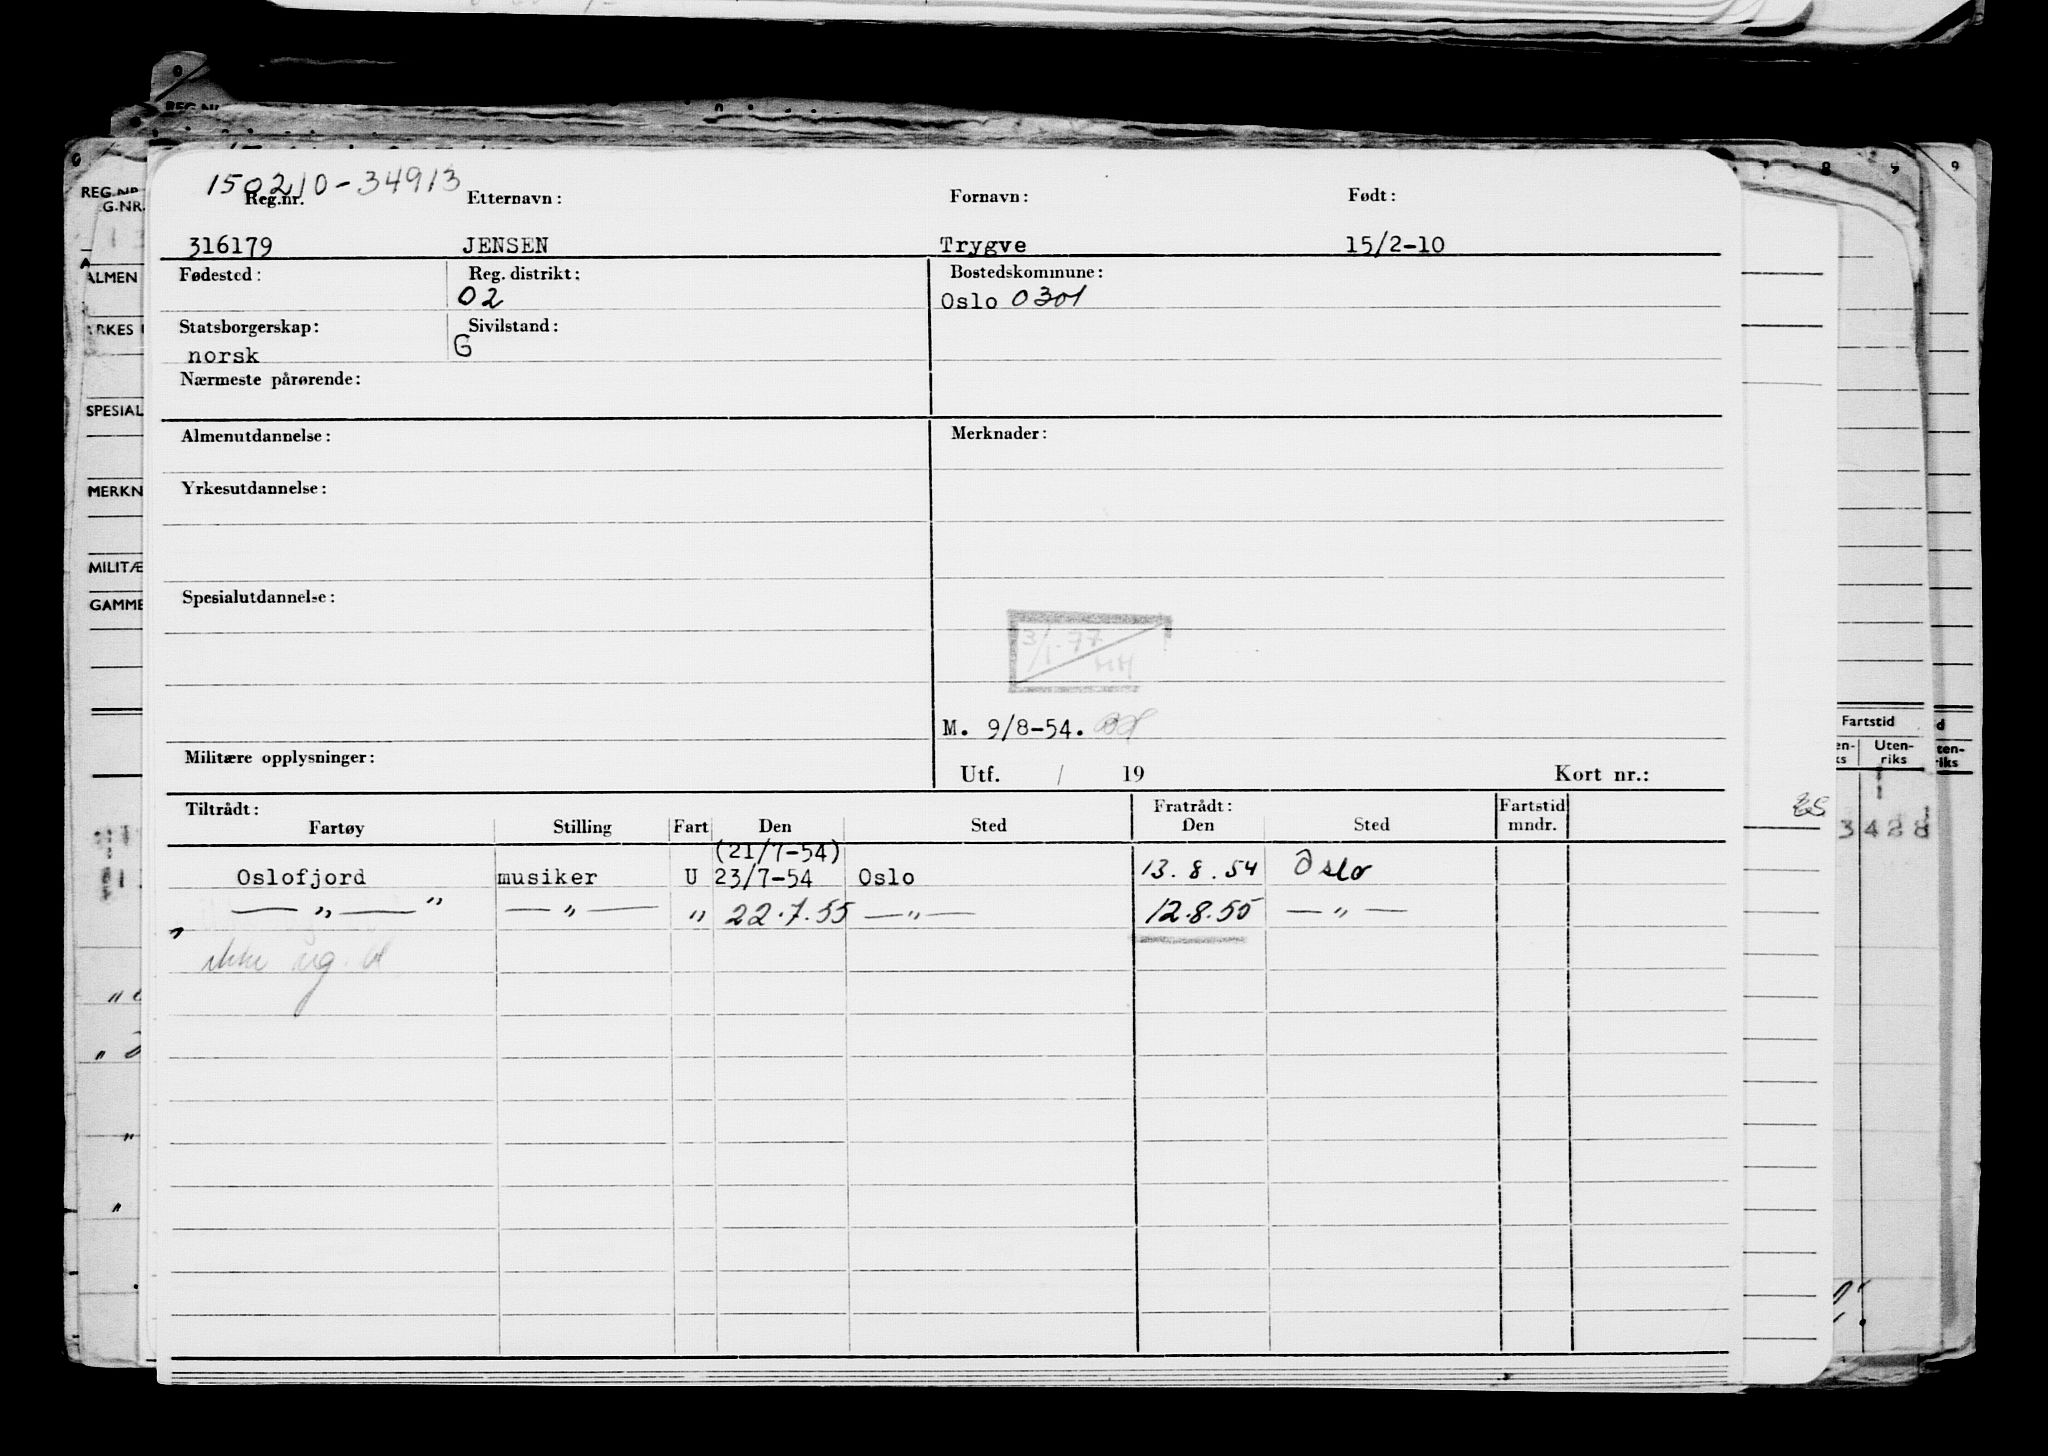 150210-34913
Reg.nr. Etternavn: Fornavn: Født:
316179 JENSEN Trygve 15/2-10
Fødested: Reg. distrikt: Bostedskommune:
02 Oslo 0301
Statsborgerskap: Sivilstand:
norsk G
Nærmeste pårørende:
Almenutdannelse: Merknader:
Yrkesutdannelse:
Spesialutdannelse:
3/1-77
HH
M. 9/8-54.
Militære opplysninger: Utf. / 19 Kort nr.:
Tiltrådt: Fratrådt: Fartstid
Fartøy Stilling Fart Den Sted Den Sted mndr.
(21/7-54)
Oslofjord musiker U 23/7-54 Oslo 13.8.54 Oslo
— " — " — " — " 22.7.55 — " — 12.8.55 — " —
ikke
REG.NR.
G.NR.
ALMEN
SPESIAL
MERKN
MILITÆ
GAMME
8 9 9
Fartstid
Uten-
riks
3 428